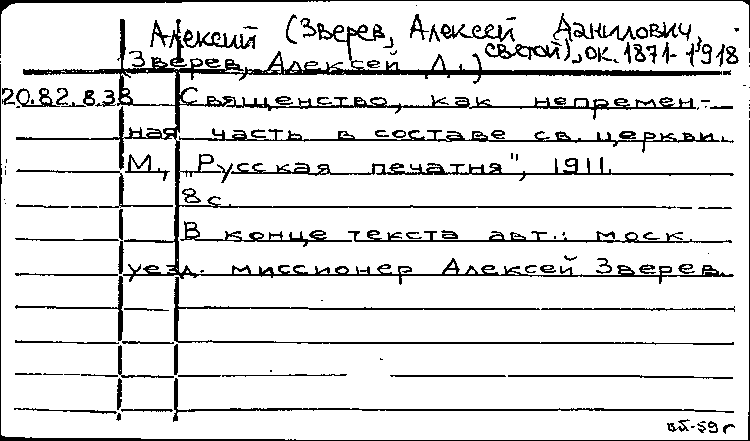 Алексий (Зверев, Алексей Данилович,
святой), ок. 1871-1918
(Зверев, Алексей Д.)
20.82.838 Священство, как непремен-
ная часть в составе св. церкви.
М., „Русская печатня", 1911.
8 с.
В конце текста авт.: моск.
уезд. миссионер Алексей Зверев.